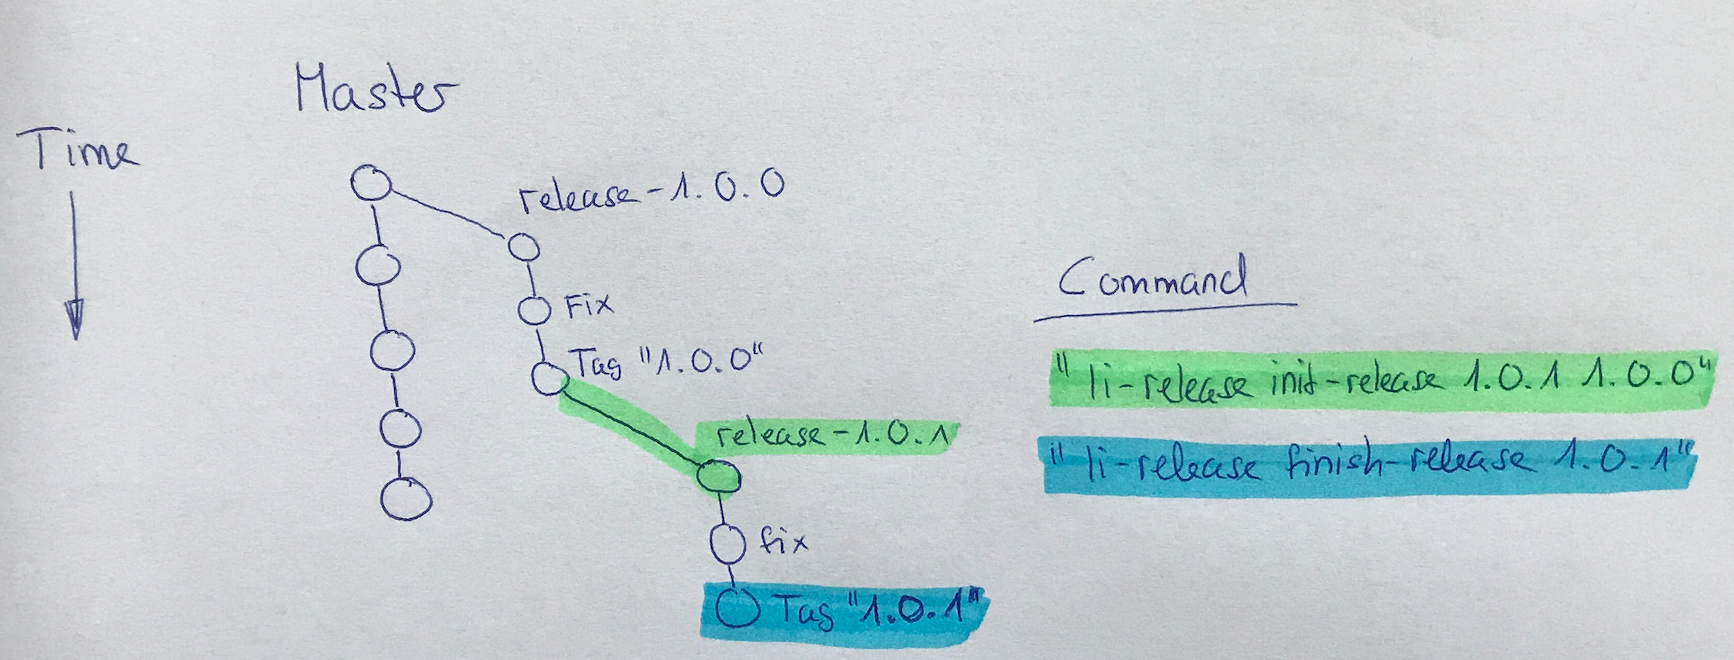 Master
Time
release-1.0.0
Fix
Tag "1.0.0"
release-1.0.1
fix
Tag "1.0.1"
Command
"li-release init-release 1.0.1 1.0.0"
"li-release finish-release 1.0.1"